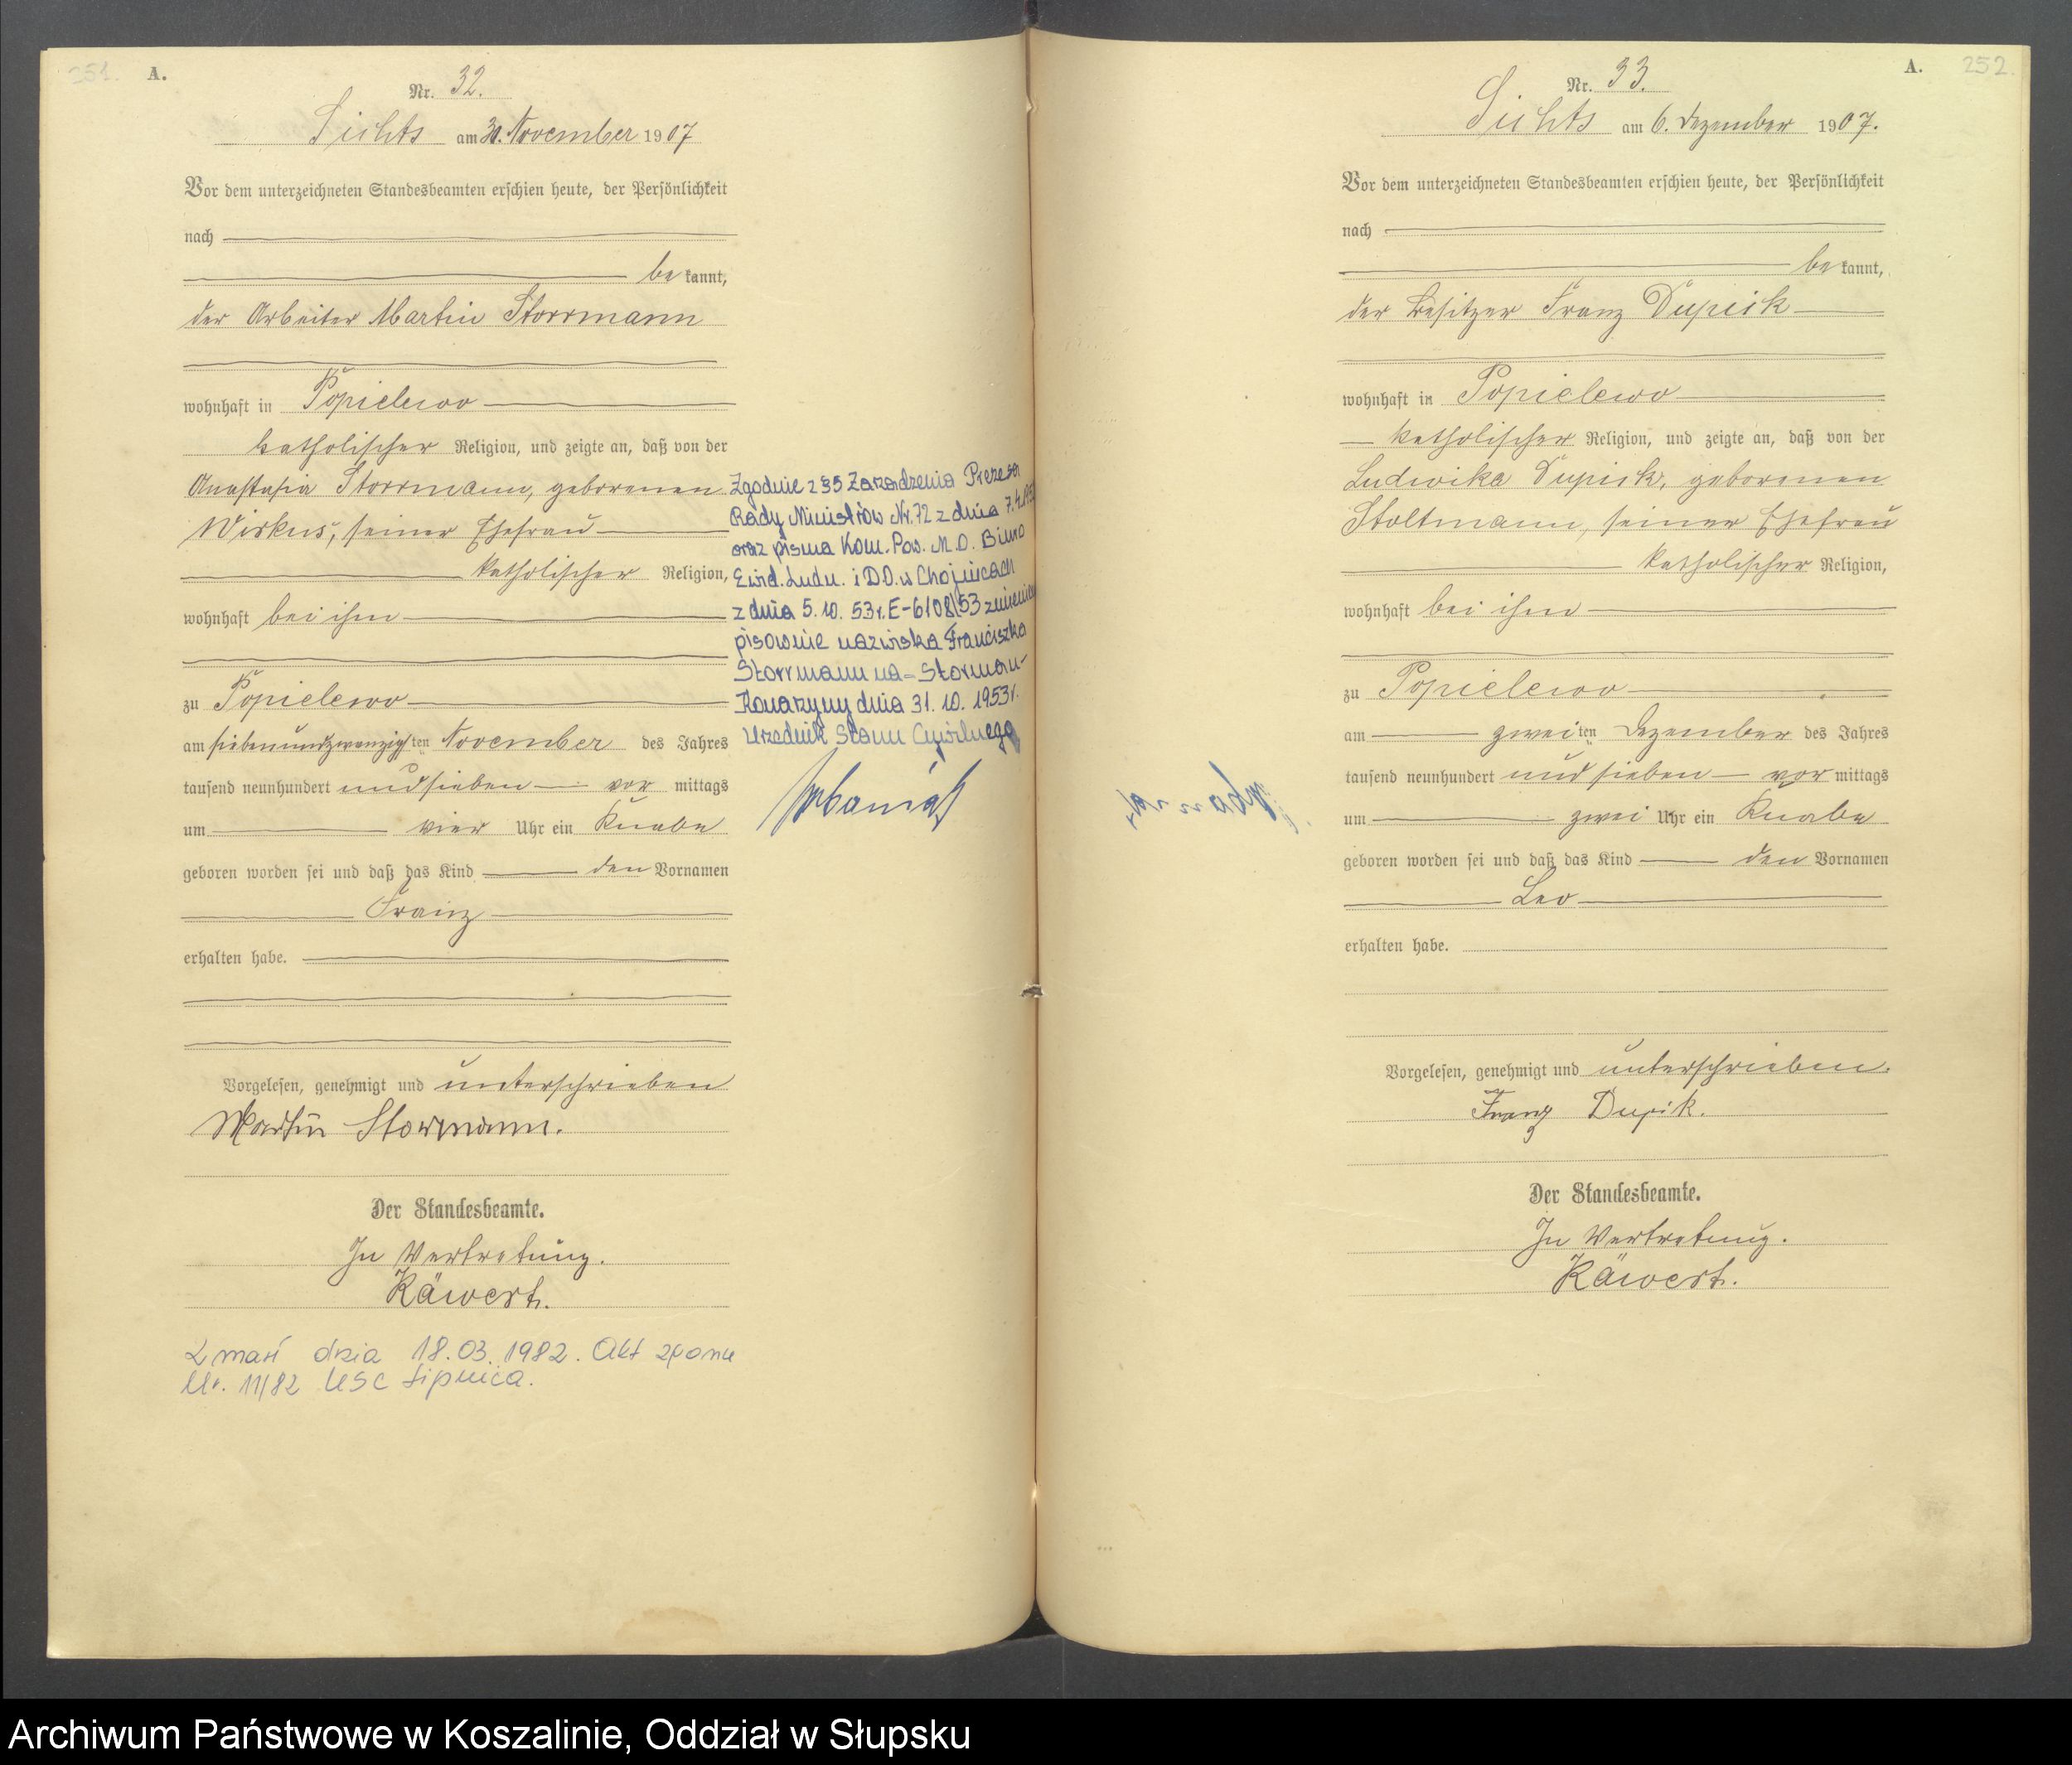 251. A.
Nr. 32.
Sichts am 30. November 1907
Vor dem unterzeichneten Standesbeamten erschien heute, der Persönlichkeit
nach
be kannt,
der Arbeiter Martin Storrmann
wohnhaft in Popielewo
katholischer Religion, und zeigte an, daß von der
Anastasia Storrmann, geborenen
Wirkus, seiner Ehefrau
katholischer Religion,
wohnhaft bei ihm
zu Popielewo
am siebenundzwanzigsten November des Jahres
tausend neunhundert und sieben vor mittags
um vier Uhr ein Knabe
geboren worden sei und daß das Kind den Vornamen
Franz
erhalten habe.
Vorgelesen, genehmigt und unterschrieben
Martin Storrmann.
Der Standesbeamte.
In Vertretung.
Käwert.
Zmarł dnia 18.03.1982. Akt zgonu
Nr. 11/82 USC Lipnica.
Zgodnie z §5 Zarządzenia Prezesa
Rady Ministrów Nr. 72 z dnia 7.4.195
oraz pisma Kom. Pow. M.O. Biuro
Ewid. Ludn. i D.O. w Chojnicach
z dnia 5.10.53 r. E-6108/53 zmieniam
pisownię nazwiska Franciszka
Storrmann na - Storman -
Konarzyny dnia 31.10.1953 r.
Urzędnik Stanu Cywilnego
A. 252.
Nr. 33.
Sichts am 6. Dezember 1907.
Vor dem unterzeichneten Standesbeamten erschien heute, der Persönlichkeit
nach
be kannt,
der Besitzer Franz Dupick
wohnhaft in Popielewo
katholischer Religion, und zeigte an, daß von der
Ludwika Dupick, geborenen
Stoltmann, seiner Ehefrau
katholischer Religion,
wohnhaft bei ihm
zu Popielewo
am zweiten Dezember des Jahres
tausend neunhundert und sieben vor mittags
um zwei Uhr ein Knabe
geboren worden sei und daß das Kind den Vornamen
Leo
erhalten habe.
Vorgelesen, genehmigt und unterschrieben.
Franz Dupik.
Der Standesbeamte.
In Vertretung.
Käwert.
Archiwum Państwowe w Koszalinie, Oddział w Słupsku